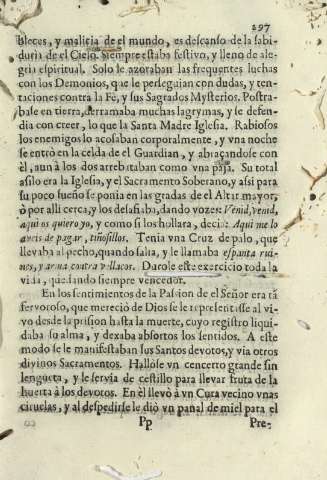 297
bleces, y malicia de el mundo, es descanso de la sabi-
duria de el Cielo. Siempre estaba festivo, y lleno de ale-
gria espiritual. Solo le azoraban las frequentes luchas
con los Demonios, que le perseguian con dudas, y ten-
taciones contra la Fè, y sus Sagrados Mysterios. Postra-
base en tierra, derramaba muchas lagrymas, y se defen-
dia con creer, lo que la Santa Madre Iglesia. Rabiosos
los enemigos lo acosaban corporalmente, y vna noche
se entrò en la celda de el Guardian, y abraçandose con
èl, aun à los dos arrebataban como vna paja. Su total
asilo era la Iglesia, y el Sacramento Soberano, y assi para
su poco sueño se ponia en las gradas de el Altar mayor,
ò por alli cerca, y los desafiaba, dando vozes: Venid, venid,
aqui os quiero yo, y como si los hollara, decia: Aqui me lo
aveis de pagar, tiñosillos. Tenia vna Cruz de palo, que
llevaba al pecho, quando salia, y le llamaba espanta rui-
nes, y arma contra pillacos. Duròle este exercicio toda la
vida, quedando siempre vencedor.
En los sentimientos de la Passion de el Señor era tã
fervoroso, que mereciò de Dios se le representasse al vi-
vo desde la prision hasta la muerte, cuyo registro liqui-
daba su alma, y dexaba absortos los sentidos. A este
modo se le manifestaban sus Santos devotos, y via otros
divinos Sacramentos. Hallòse vn cencerro grande sin
lengueta, y le servia de cestillo para llevar fruta de la
huerta à los devotos. En èl llevò à vn Cura vecino vnas
ciruelas, y al despedirse le diò vn panal de miel para el
Pp
Pre-